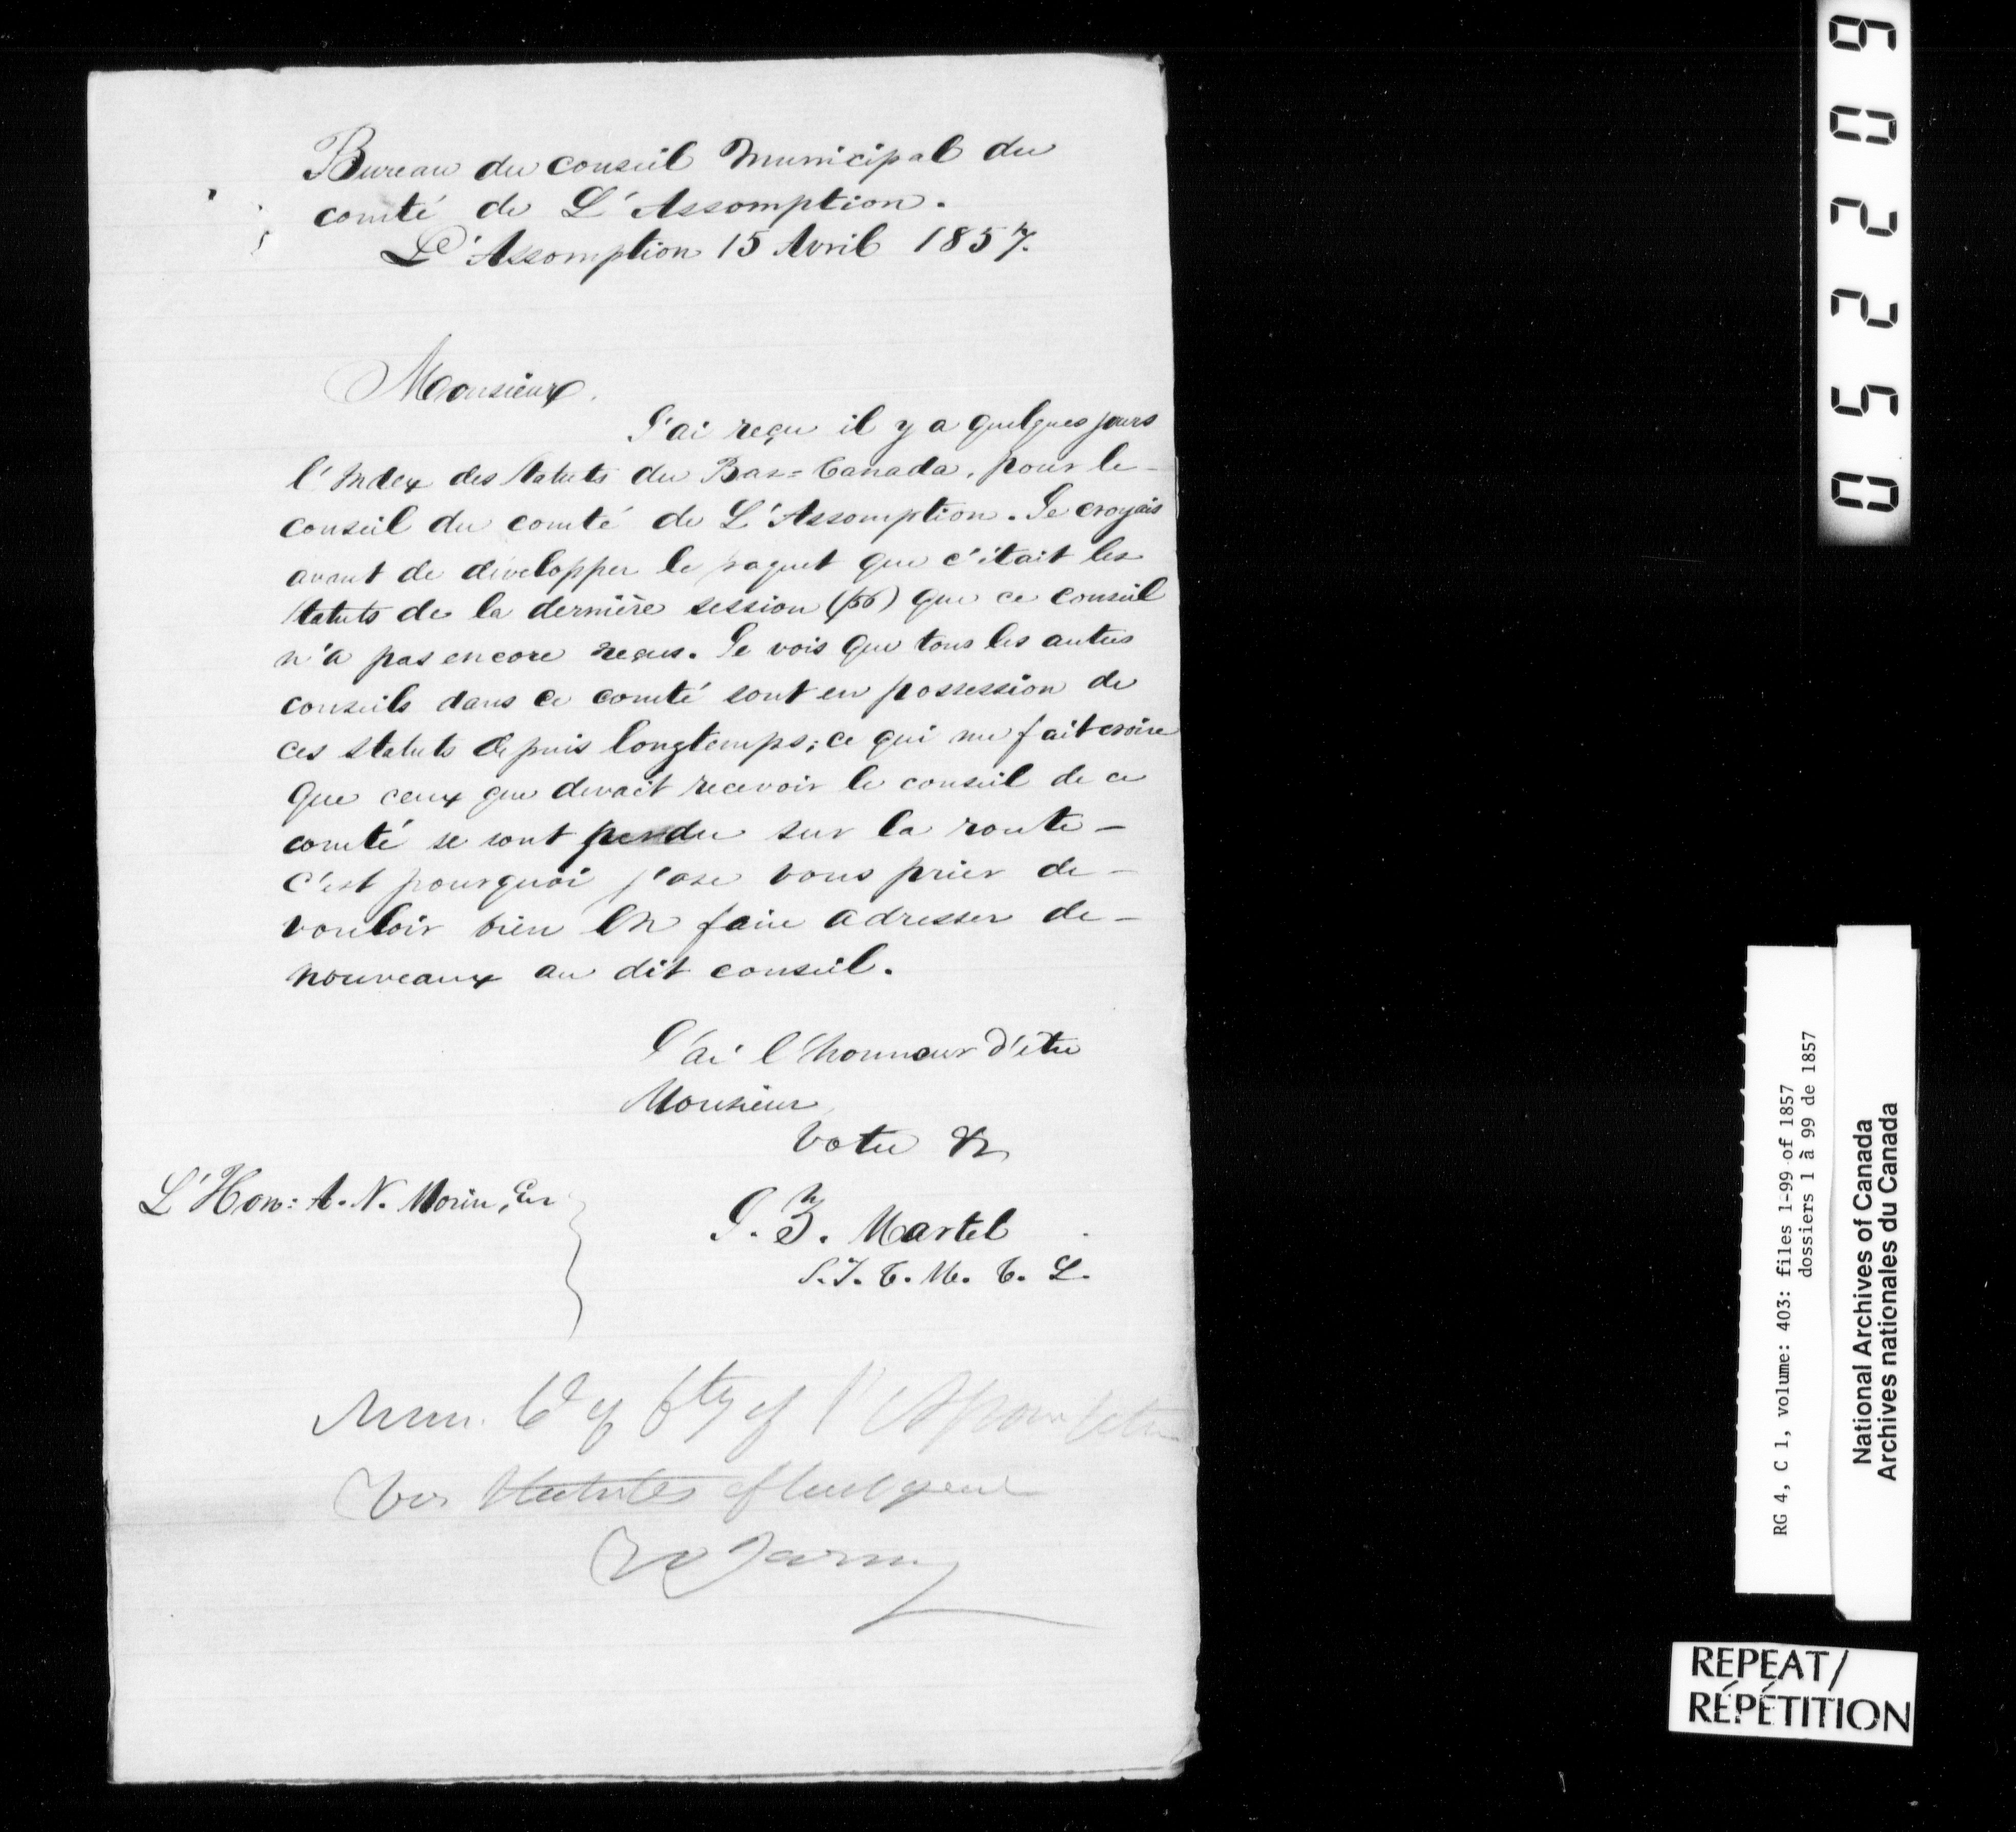 Bureau du conseil Municipal du
comté de L'Assomption.
L'Assomption 15 Avril 1857.
Monsieur,
J'ai reçu il y a quelques jours
l'Index des Statuts du Bas=Canada, pour le
conseil du comté de L'Assomption. Je croyais
avant de développer le paquet que c'était les
Statuts de la dernière session (56) que ce conseil
n'a pas encore reçus. Je vois que tous les autres
conseils dans ce comté sont en possession de
ces statuts depuis longtemps; ce qui me fait croire
que ceux que devait recevoir le conseil de ce
comté se sont perdu sur la route –
C'est pourquoi j'ose vous prier de –
vouloir bien en faire adresser de –
nouveaux au dit conseil.
J'ai l'honneur d'être
Monsieur
Votre &c
L'Hon: A. N. Morin, Er
J. Z. Martel
S.T.C.M.C.L.
Mun. Cl of Cty of l'
Statutes of last year
6
0
2
2
5
0
RG 4, C 1, volume: 403: files 1-99 of 1857
dossiers 1 à 99 de 1857
National Archives of Canada
Archives nationales du Canada
REPEAT/
RÉPÉTITION